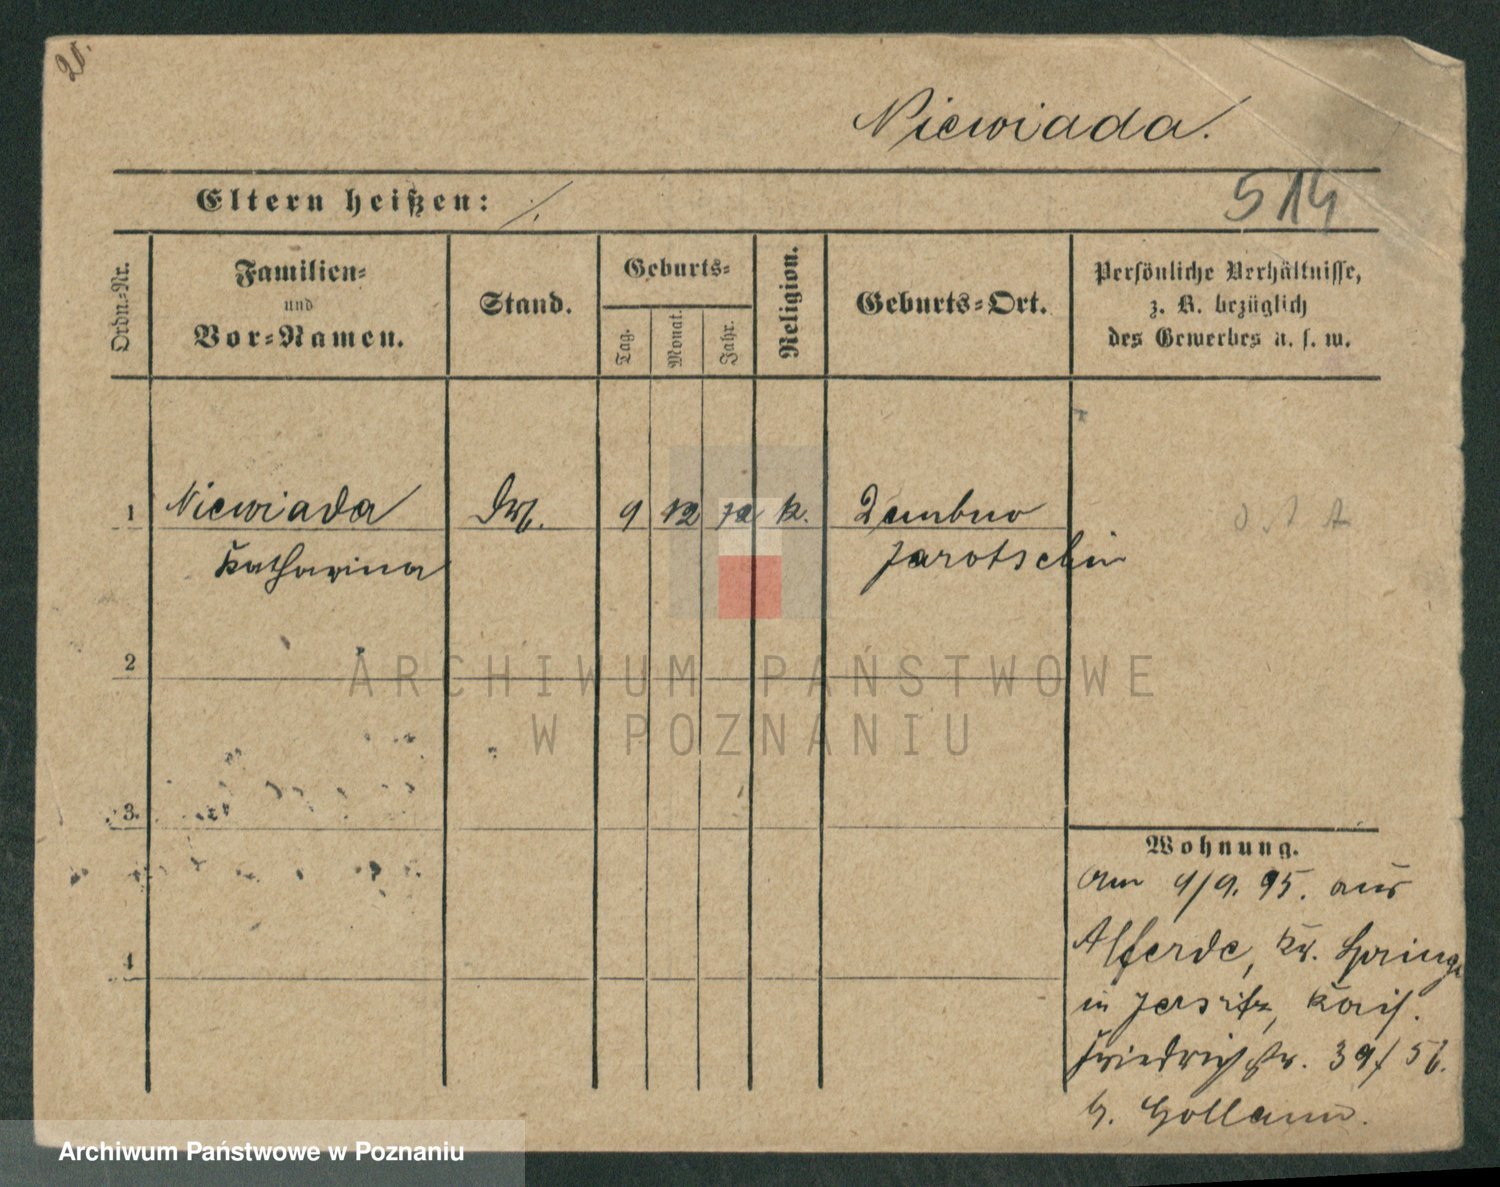 20.
Niewiada.
Eltern heißen: /.
514
Ordn.-Nr.
Familien-
und
Vor-Namen.
Stand.
Geburts-
Tag.
Monat.
Jahr.
Religion.
Geburts-Ort.
Persönliche Verhältnisse,
z. B. bezüglich
des Gewerbes u. s. w.
1 Niewiada 9 12 k. Dembno
Katharina Jarotschin
2
3.
4
Wohnung.
am 9. 95. aus
Alferde, Kr. Springe
in Jersitz, Kais.
Friedrichstr. 39/
b. Gollann.
ARCHIWUM PAŃSTWOWE
W POZNANIU
Archiwum Państwowe w Poznaniu